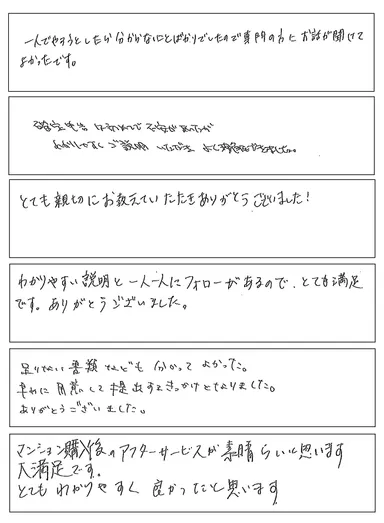 一人でやろうとしたら分からないことばかりでしたので専門の方にお話が聞けて
よかったです。
確定申告は初めてで不安でしたが
わかりやすくご説明いただき
とても親切にお教えいただきありがとうございました!
わかりやすい説明と一人一人にフォローがあるので、とても満足
です。ありがとうございました。
足りない書類なども分かってよかった。
早めに用意して提出するきっかけとなりました。
ありがとうございました。
マンション購入後のアフターサービスが素晴らしいと思います
大満足です。
とてもわかりやすく良かったと思います